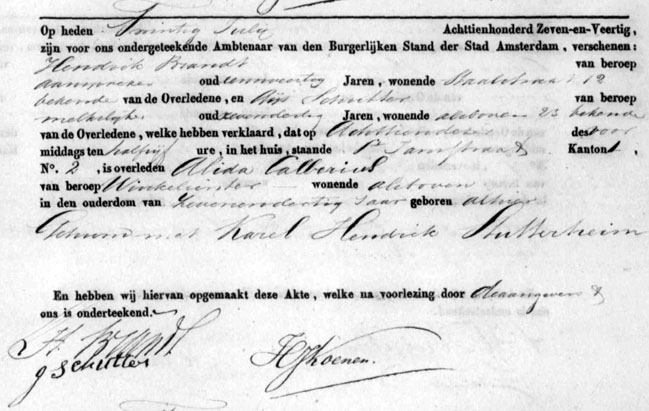 Op heden Twintig Julij Achttienhonderd Zeven-en-Veertig,
zijn voor ons ondergeteekende Ambtenaar van den Burgerlijken Stand der Stad Amsterdam, verschenen:
Hendrik Brandt van beroep
aanspreker oud eenenveertig Jaren, wonende Staalstraat 12
bekende van de Overledene, en Gijs Schutter van beroep
oud Jaren, wonende aleboven 23 bekende
van de Overledene, welke hebben verklaard, dat op Achttiende des voor
middags ten half vijf ure, in het huis, staande St Jansstraat Kanton 1,
No. 2, is overleden Alida Calberius
van beroep Winkelierster wonende aleboven
in den ouderdom van zevenendertig Jaar geboren alhier
Gehuwd met Karel Hendrick Stutterheim
En hebben wij hiervan opgemaakt deze Akte, welke na voorlezing door de aangevers &
ons is onderteekend.
H Brandt
g Schutter
HJKoenen.